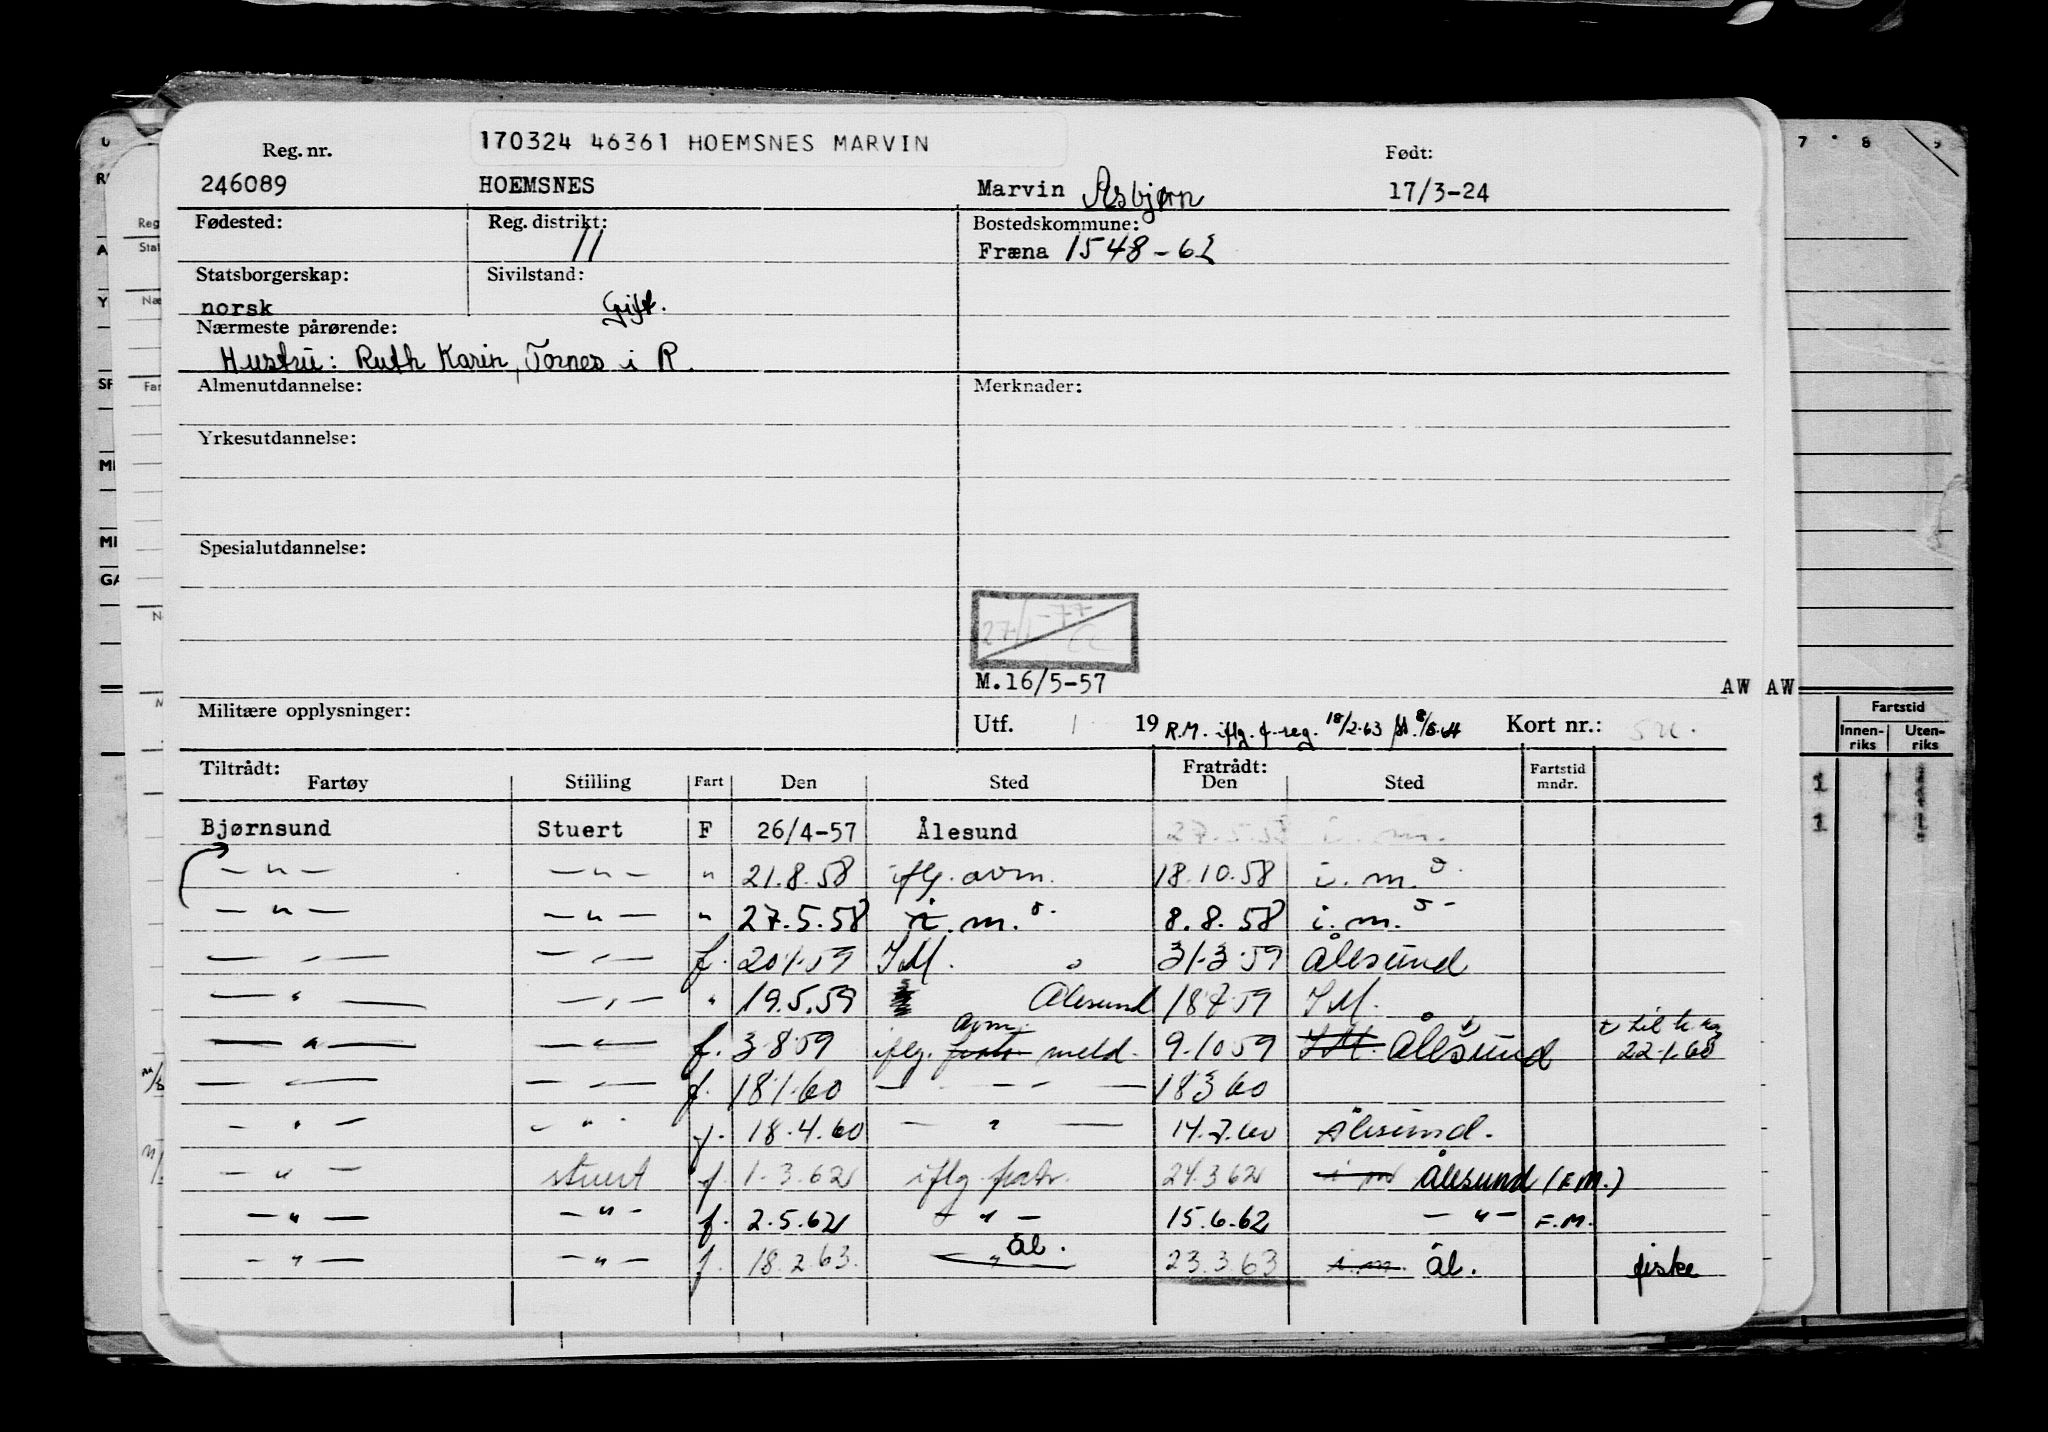 170324 46361 HOEMSNES MARVIN
Reg. nr. Født:
246089 HOEMSNES Marvin Asbjørn 17/3-24
Fødested: Reg. distrikt: Bostedskommune:
11 Fræna 1548-62
Statsborgerskap: Sivilstand:
norsk Gift.
Nærmeste pårørende:
Hustru: Ruth Karin, Tornes i R.
Almenutdannelse: Merknader:
Yrkesutdannelse:
Spesialutdannelse:
27/1-77
M.16/5-57
AW AW
Militære opplysninger: Utf. 1 19 R.M. iflg. f.reg. 18/2-63 Kort nr.:
Tiltrådt: Fratrådt:
Fartøy Stilling Fart Den Sted Den Sted Fartstid mndr.
Bjørnsund Stuert F 26/4-57 Ålesund 27.5.58 i.m.
— " — — " — " 21.8.58 iflg. avm. 18.10.58 i. m.
— " — — " — " 27.5.58 i. m. 8.8.58 i. m.
— " — — " — f. 20.1.59 I.M. 31.3.59 Ålesund
— " — — " — " 19.5.59 Ålesund 18.7.59 I.M.
avm. t til
— " — — " — f. 3.8.59 iflg. fratr. meld. 9.10.59 I.M. Ålesund 22.1.60
— " — — " — f. 18.1.60 — " — 18.3.60
— " — — " — f. 18.4.60 — " — 14.7.60 Ålesund.
— " — stuert f. 1.3.62 iflg. fratr. 24.3.62 i m Ålesund (F.M.)
— " — — " — f. 2.5.62 — " — 15.6.62 — " — F.M.
— " — — " — f. 18.2.63. — " — Ål. 23.3.63 i.m. Ål. fiske
7 8 9
Fartstid
Innen-riks Uten-riks
1
1